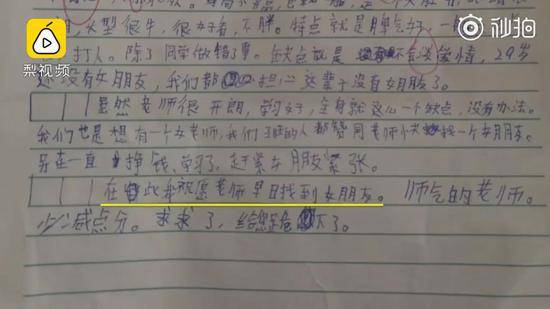 梨视频
秒拍
型很牛,很好看,不胖。特点就是脾气好,一
打人。除了同学做错了事。缺点就是不会谈爱情,29岁
还没有女朋友,我们都担心这辈子没有女朋友了。
虽然老师很开朗,学习好,全身就这么一个缺点,没有办法。
我们也是想有一个女老师,我们班的人都赞同老师快找一个女朋友。
在一直挣钱、学习了,赶紧女朋友紧张。
在此祝愿老师早日找到女朋友。 师气的老师。
少减点分。求求了,给您跪下了。